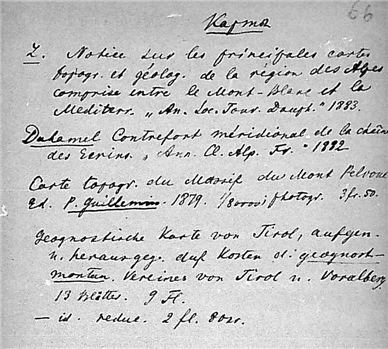 66
Карты
Z. Notice sur les principales cartes
topogr. et géolog. de la région des Alpes
comprise entre le Mont-Blanc et la
Mediterr. „An. Soc. Tour. Dauph." 1883.
Duhamel Contrefort méridional de la chaîne
des Ecrins. „Ann. Cl. Alp. Fr."
Carte topogr. du Massif du Mont Pelvoux
Ed. P. Guillemin 1879. photogr. 3 fr. 50.
Geognostische Karte von Tirol, aufgen.
u. herausgeg. auf Kosten d. geognost-
montan. Vereines von Tirol u. Voralberg
13 Blätter. 9 Fl.
— id. reduc. 2 fl.